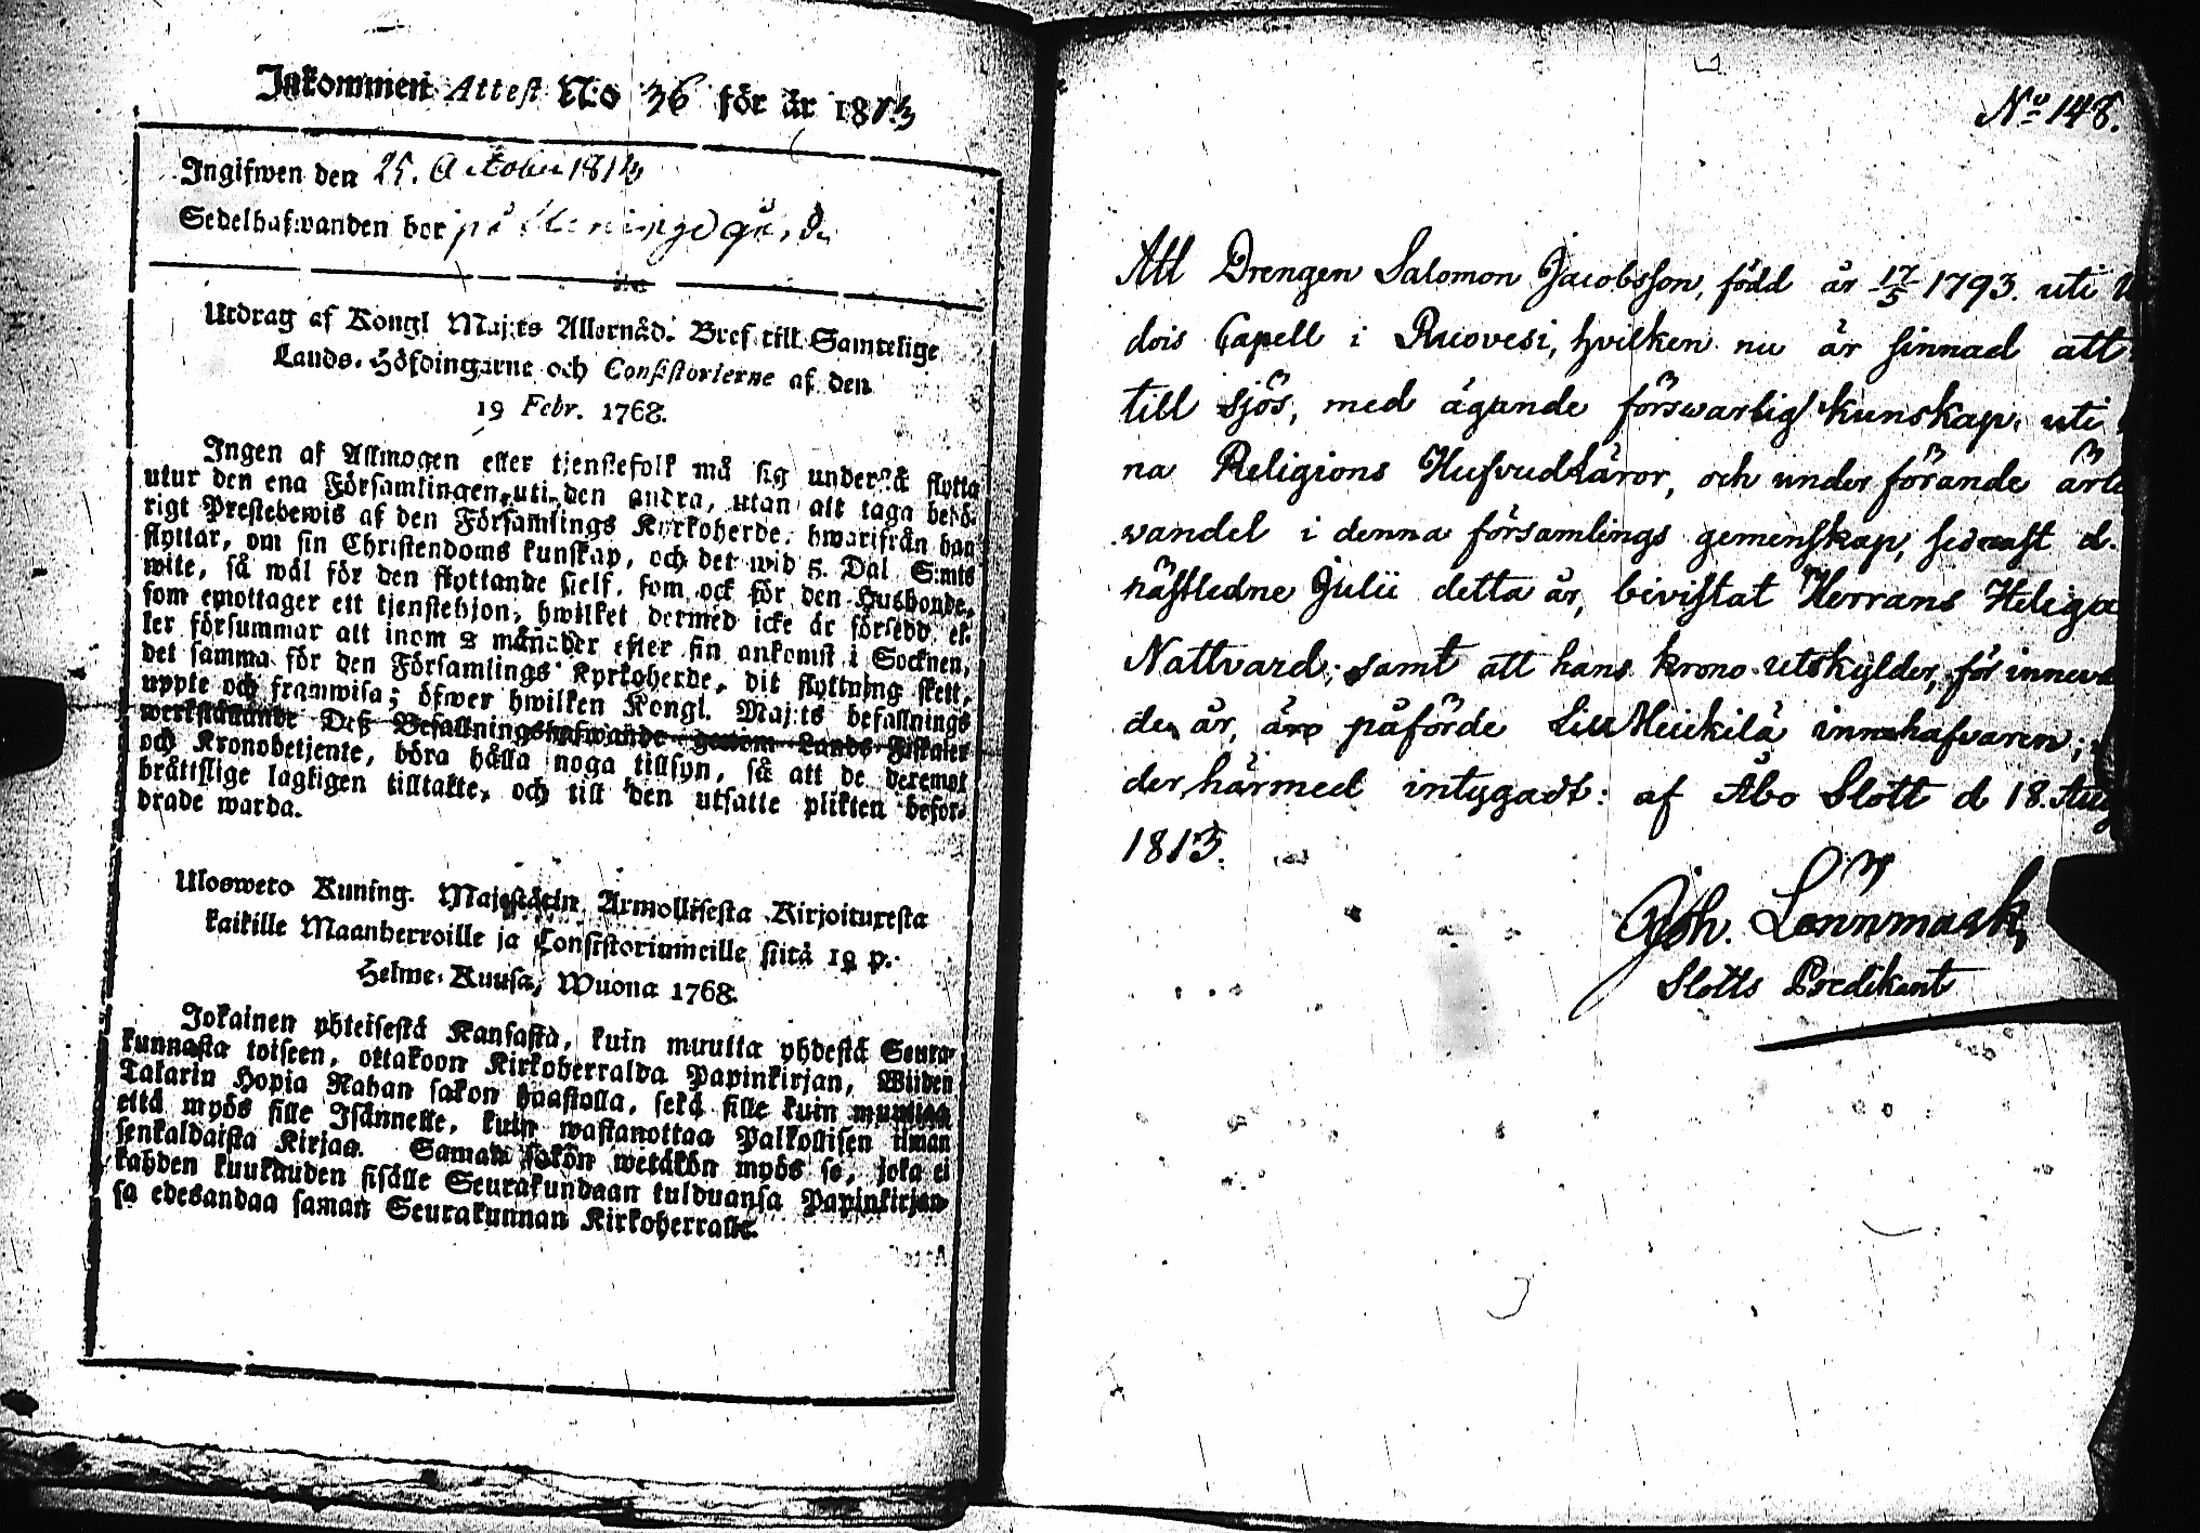 Inkommen Attest N:o 36 för år 1813
Ingifwen den 25. October 1813
Sedelhafwanden bor på
Utdrag af Kongl Maj:ts Allernåd. Bref till Samtelige
Lands-Höfdingarne och Consistorierne af den
19 Febr. 1768.
Ingen af Allmogen eller tjenstefolk må sig understå flytta
utur den ena Församlingen uti den andra, utan att taga behö-
rigt Prestebewis af den Församlings Kyrkoherde, hwarifrån han
flyttar, om sin Christendoms kunskap, och det wid 5. Dal. S:mts
wite, så wäl för den flyttande sjelf, som ock för den Husbonde,
som emottager ett tjenstehjon, hwilket dermed icke är försedd, el-
ler försummar att inom 2 månader efter sin ankomst i Socknen,
det samma för den Församlings Kyrkoherde, dit flyttning skett,
uppte och framwisa; öfwer hwilken Kongl. Maj:ts befallnings
werkställande Deß Befallningshafwande genom Lands-Fiskaler
och Kronobetjente, böra hålla noga tillsyn, så att de deremot
bråttslige lagligen tilltalte, och till den utsatte plikten befor-
drade warda.
Ulosweto Kuning. Majestätin Armollisesta Kirjoituxesta
kaikille Maanherroille ja Consistoriumeille siitä 19 p.
Helme-Kuusa, Wuona 1768.
Jokainen yhteisestä Kansasta, kuin muutta yhdestä Seura-
kunnasta toiseen, ottakoon Kirkoherralda Papinkirjan, Wiiden
Talarin Hopia Rahan sakon haastolla, sekä sille kuin muuttaa
että myös sille Isännelle, kuin wastanottaa Palkollisen ilman
senkaldaista Kirjaa. Saman sakon wetäkön myös se, joka ei
kahden kuukauden sisälle Seurakundaan tulduansa Papinkirjan-
sa edesandaa saman Seurakunnan Kirkoherralle.
No 148.
Att Drengen Salomon Jacobsson, född år 17/5 1793. uti
dois Capell i Ruovesi, hvilken nu är sinnad att
till sjös, med ägande försvarlig kunskap uti
na Religions Hufvudläror, och under förande ärl
vandel i denna församlings gemenskap, sednast d.
nästledne Julii detta år, bevistat Herrans Heliga
Nattvard; samt att hans krono utskylder, för inneva
de år, äro påförde innehafvaren;
der härmed intygadt: af Åbo Slott d 18. Aug
1813.
Joh. Lönnmark,
Slotts Predikant